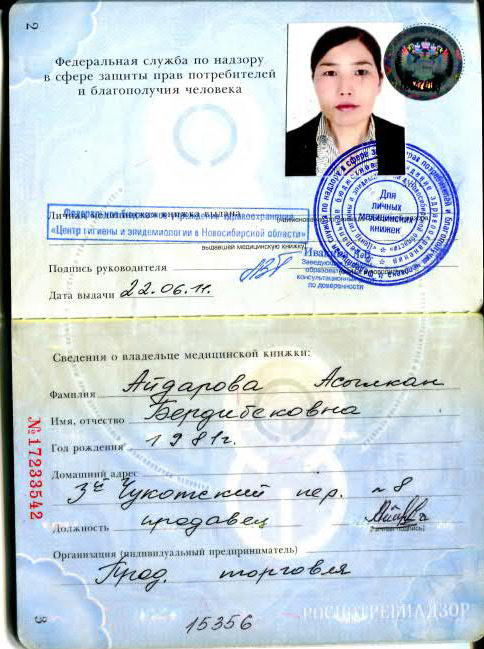 2
Федеральная служба по надзору
в сфере защиты прав потребителей
и благополучия человека
Личная медицинская книжка выдана
«Центр гигиены и эпидемиологии в Новосибирской области»
выдавшей медицинскую книжку)
Для
личных
медицинских
книжек
Подпись руководителя
Заведующая
образовательно-
консультационн
по доверенности
Дата выдачи 22.06.11.
Сведения о владельце медицинской книжки:
Фамилия Айдарова Асылкан
Имя, отчество Бердибековна
Год рождения 1981г.
Домашний адрес
3й Чукотский пер. 8
Должность продавец
(Личная подпись)
Организация (индивидуальный предприниматель)
Прод. торговля
№17233542
3
15356
РОСПОТРЕБНАДЗОР